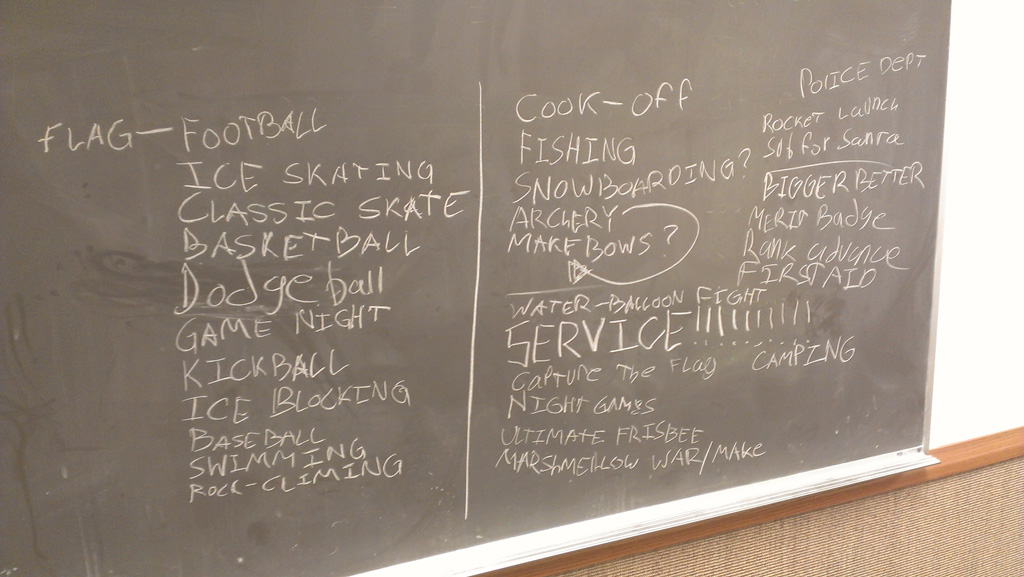 FLAG — FOOTBALL
ICE SKATING
CLASSIC SKATE
BASKETBALL
Dodge ball
GAME NIGHT
KICKBALL
ICE BLOCKING
BASEBALL
SWIMMING
ROCK-CLIMING
COOK-OFF
FISHING
SNOWBOARDING?
ARCHERY
MAKE BOWS?
WATER-BALLOON FIGHT
SERVICE
CAPTURE The Flag
NIGHT GAMES
ULTIMATE FRISBEE
MARSHMELLOW WAR/MAKE
POLICE DEPT
ROCKET LAUNCH
Sub for Santa
BIGGER BETTER
MERIT Badge
Rank advance
FIRST AID
CAMPING